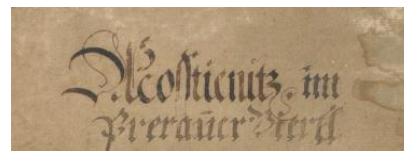 Mosstienitz im
Preraŭer Viertl